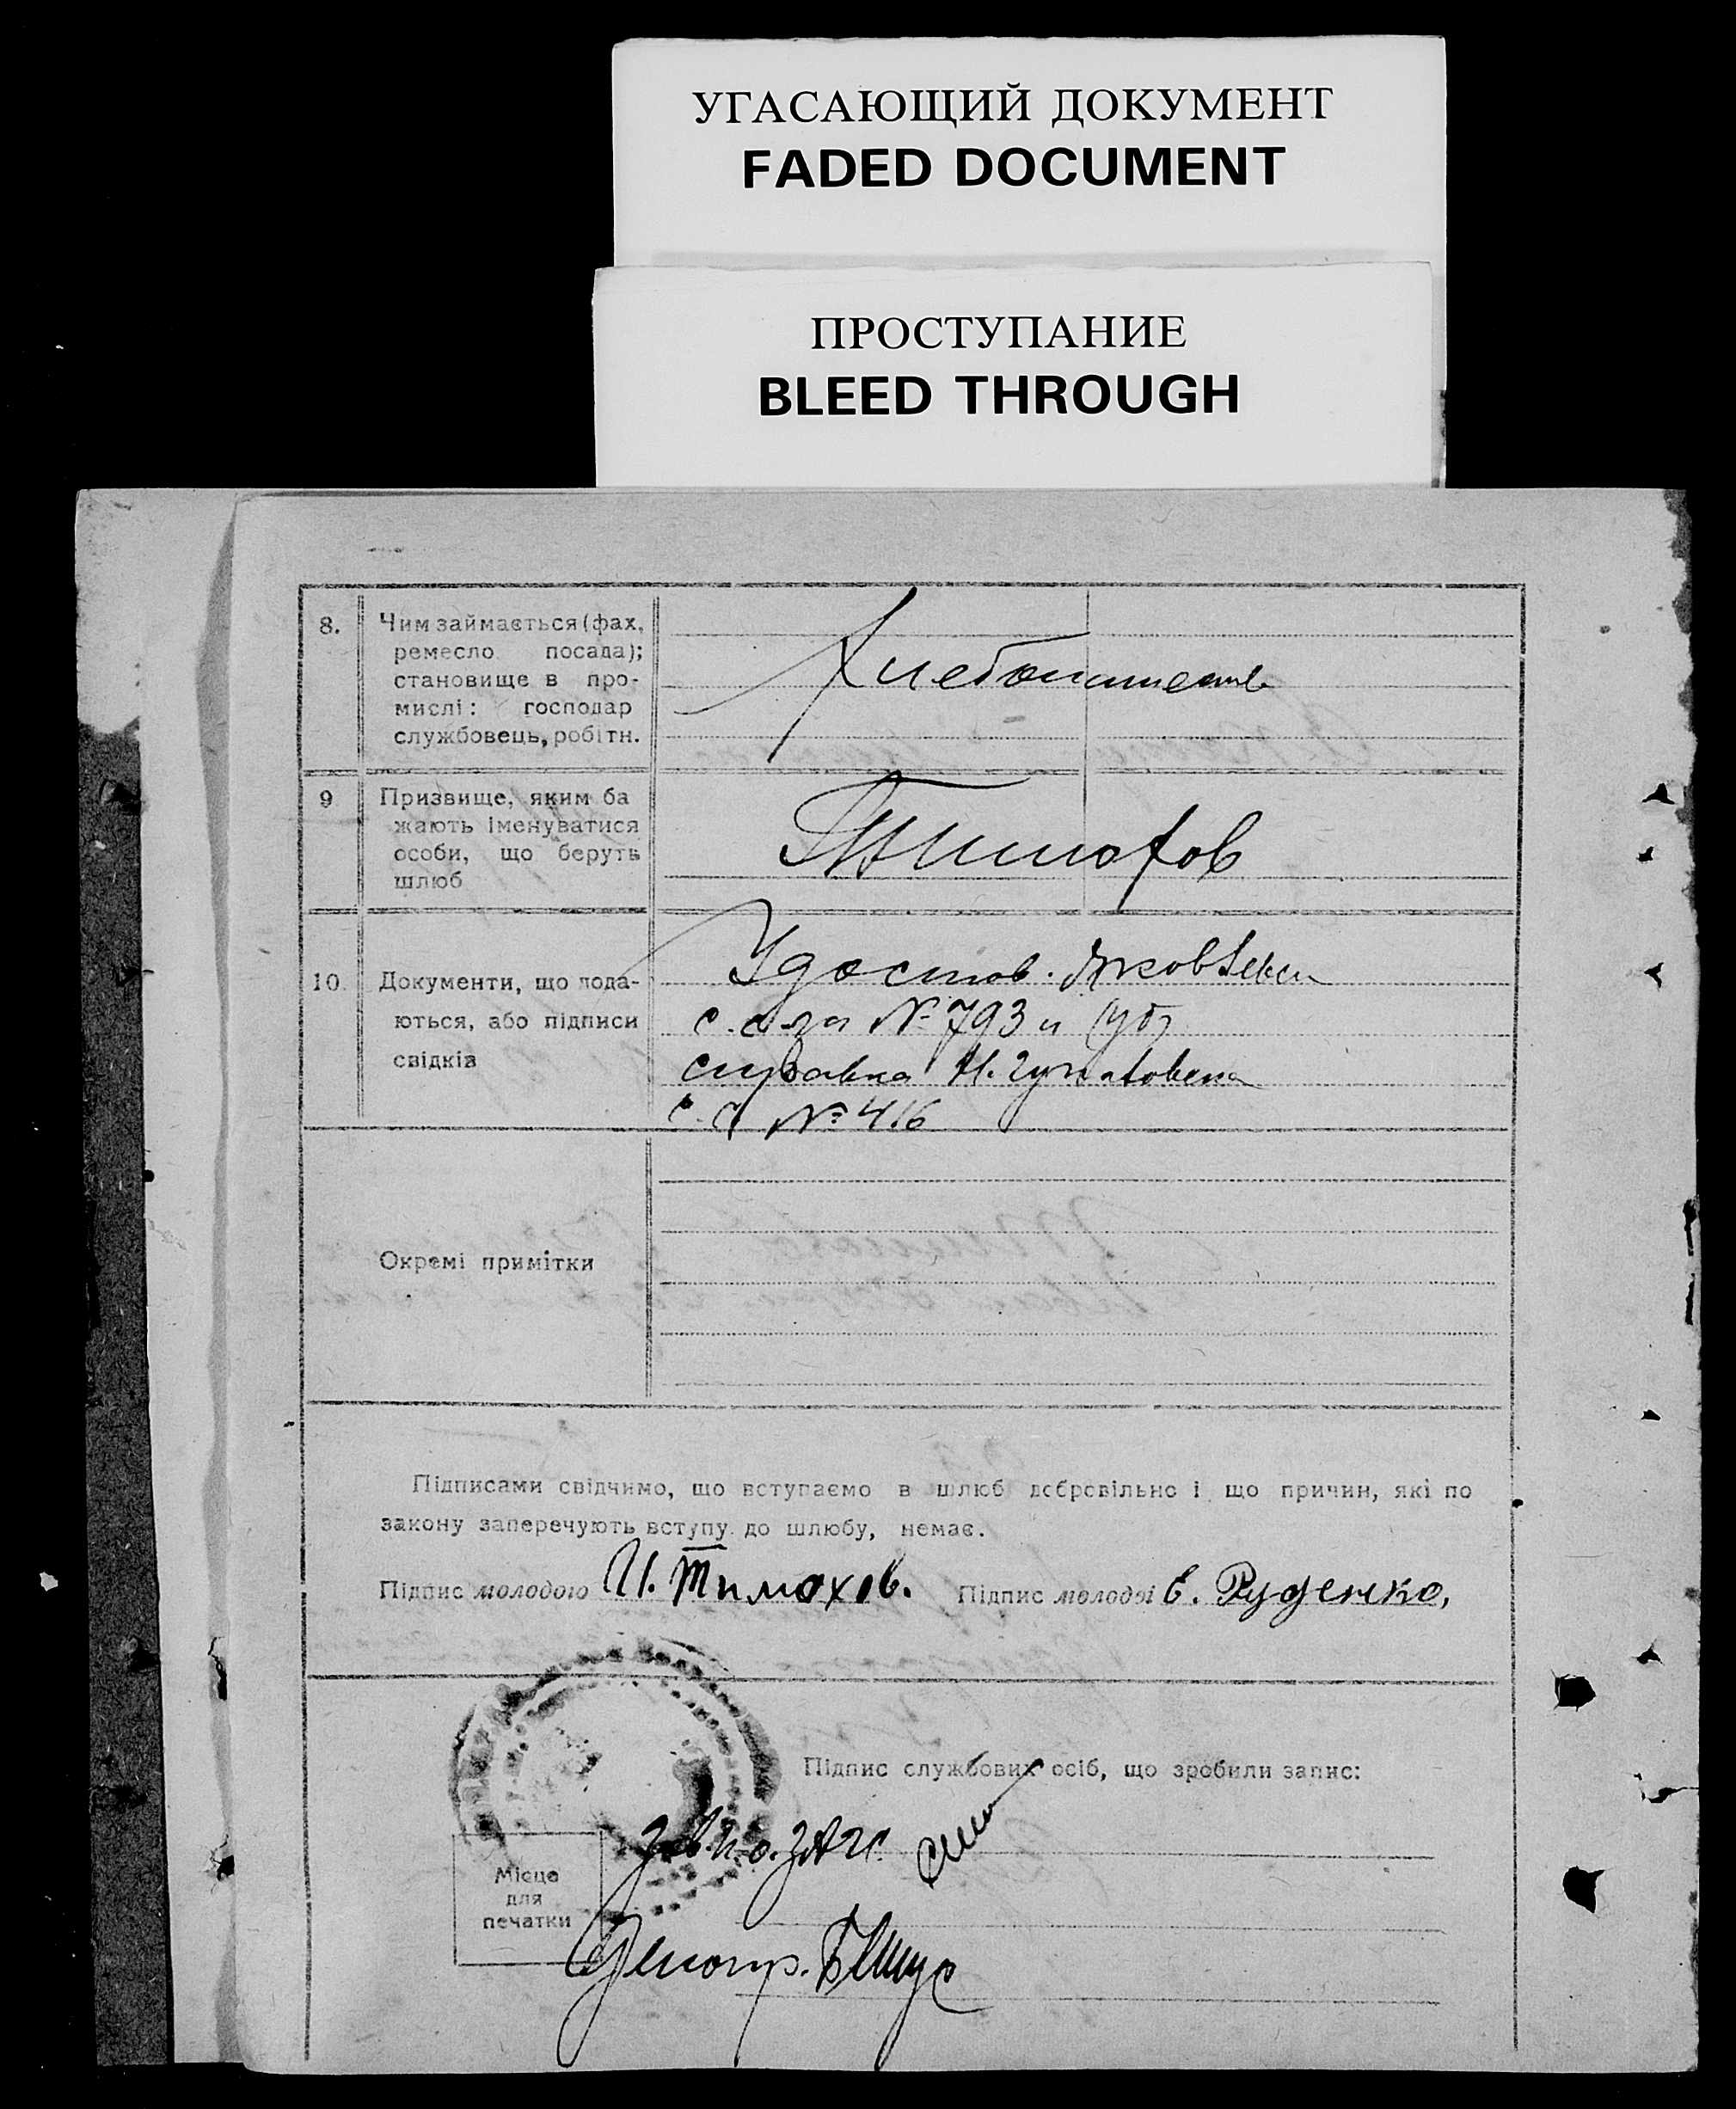 УГАСАЮЩИЙ ДОКУМЕНТ
FADED DOCUMENT
ПРОСТУПАНИЕ
BLEED THROUGH
8. Чим займається (фах,
ремесло посада);
становище в про-
мислі: господар
службовець, робітн.
9 Призвище, яким ба
жають іменуватися
особи, що беруть
шлюб
Тимохов
10. Документи, що пода-
ються, або підписи
свідків
Удостов.
с. с-за № 793 и
справка
с. с № 416
Окремі примітки
Підписами свідчимо, що вступаємо в шлюб добровільно і що причин, які по
закону заперечують вступу до шлюбу, немає.
Підпис молодого И. Тимохов. Підпис молодої Е. Руденко,
Підпис службових осіб, що зробили запис:
Місце
для
печатки